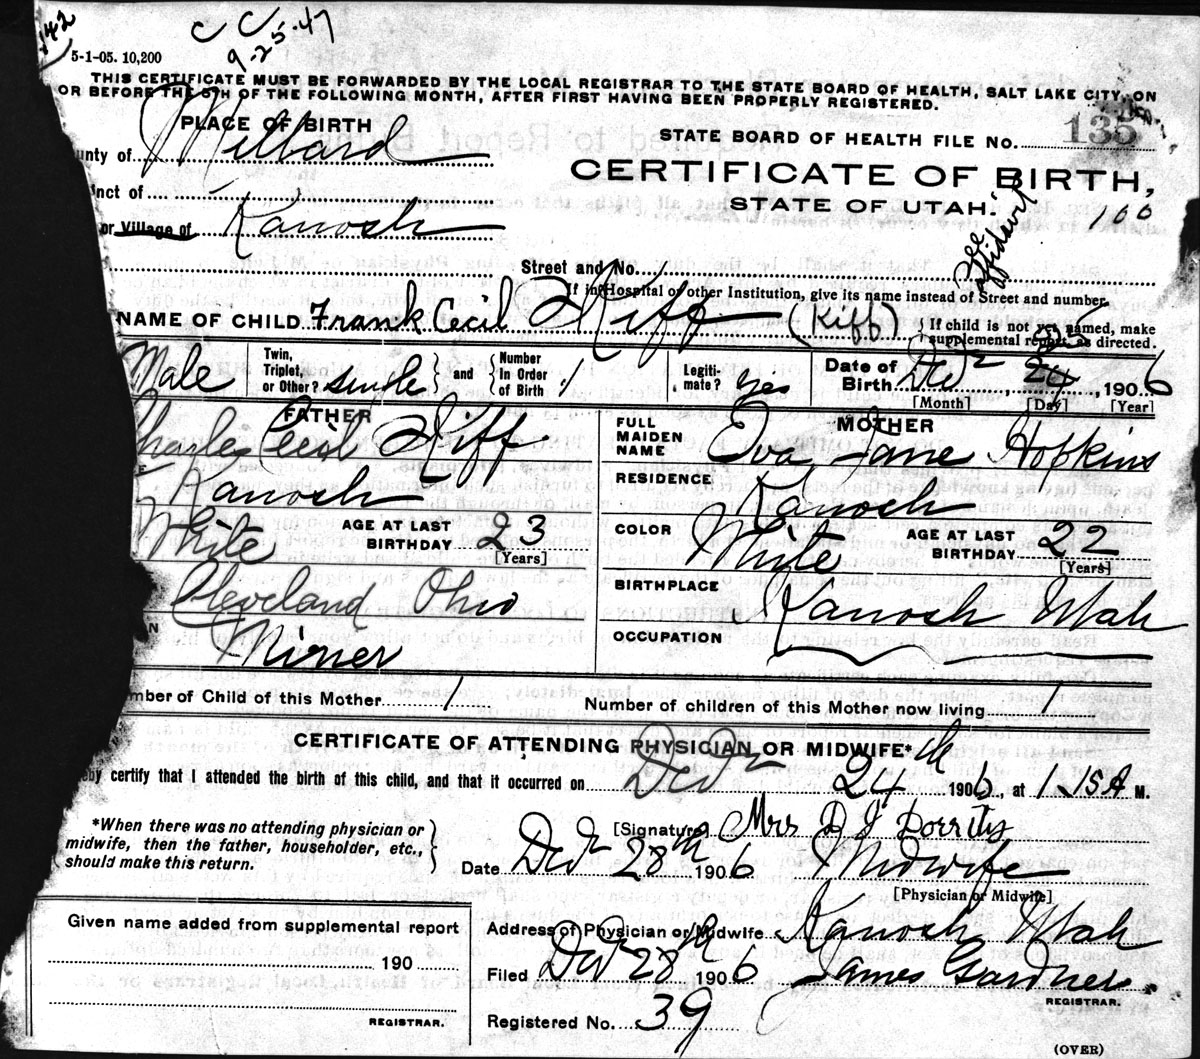 142
C C
9-25-47
5-1-05. 10,200
THIS CERTIFICATE MUST BE FORWARDED BY THE LOCAL REGISTRAR TO THE STATE BOARD OF HEALTH, SALT LAKE CITY, ON
OR BEFORE THE 5TH OF THE FOLLOWING MONTH, AFTER FIRST HAVING BEEN PROPERLY REGISTERED.
PLACE OF BIRTH
unty of Millard
STATE BOARD OF HEALTH FILE NO. 135
CERTIFICATE OF BIRTH,
STATE OF UTAH.
100
inct of
or Village of Kanosh
See Affidavit
Street and No.
If in Hospital or other Institution, give its name instead of Street and number.
NAME OF CHILD Frank Cecil Kiff (Kiff) { If child is not yet named, make
supplemental report, as directed.
Male Twin, Triplet, or Other? single } and { Number In Order of Birth 1 Legiti- mate? yes Date of Birth Dec 25 24, 1906
[Month] [Day] [Year]
FATHER
Charle Cecil Kiff
Kanosh
White AGE AT LAST BIRTHDAY 23
[Years]
Cleveland Ohio
Miner
MOTHER
FULL MAIDEN NAME Eva Jane Hopkins
RESIDENCE Kanosh
COLOR White AGE AT LAST BIRTHDAY 22
[Years]
BIRTHPLACE Kanosh Utah
OCCUPATION
mber of Child of this Mother 1 Number of children of this Mother now living 1
CERTIFICATE OF ATTENDING PHYSICIAN OR MIDWIFE*
eby certify that I attended the birth of this child, and that it occurred on Decr 24th 1906, at 1.15 A M.
*When there was no attending physician or
midwife, then the father, householder, etc.,
should make this return.
[Signature] Mrs D J Dorrity
Date Decr 28th 1906 Midwife
[Physician or Midwife]
Given name added from supplemental report
190
REGISTRAR.
Address of Physician or Midwife Kanosh Utah
Filed Decr 28th 1906 James Gardner.
REGISTRAR.
Registered No. 39
(OVER)